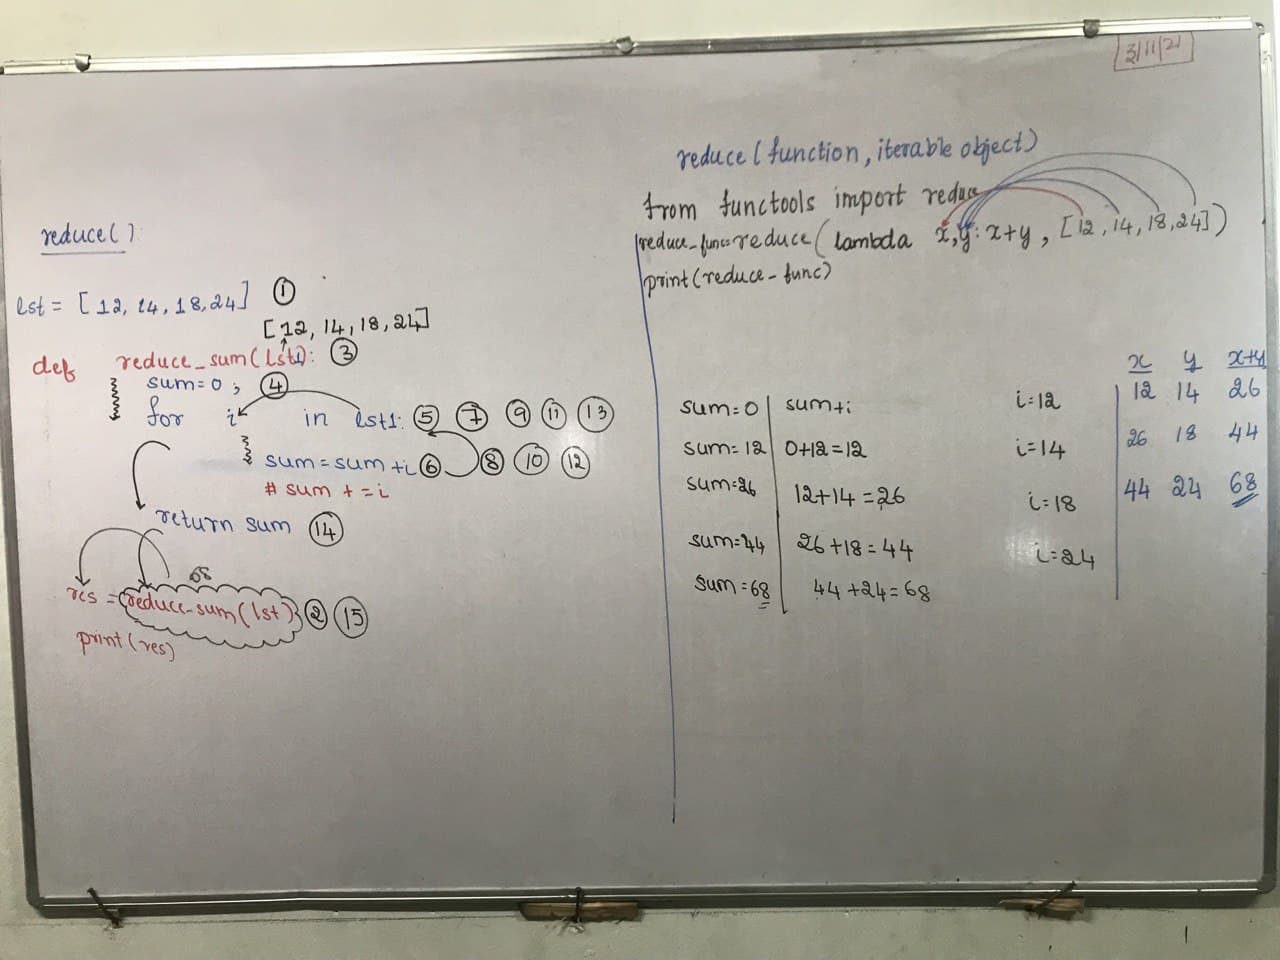 3/11/21
reduce():
lst = [12, 14, 18, 24] ①
[12, 14, 18, 24]
def reduce_sum(lst1): ③
sum=0; ④
for i in lst1: ⑤ ⑦ ⑨ ⑪ ⑬
sum=sum+i ⑥ ⑧ ⑩ ⑫
# sum+=i
return sum ⑭
68
res = reduce-sum(lst) ② ⑮
print(res)
reduce(function, iterable object)
from functools import reduce
reduce_func=reduce(lambda x,y: x+y, [12, 14, 18, 24])
print(reduce-func)
sum=0 sum+i i=12
sum=12 0+12=12 i=14
sum=26 12+14=26 i=18
sum=44 26+18=44 i=24
sum=68 44+24=68
x y x+y
12 14 26
26 18 44
44 24 68